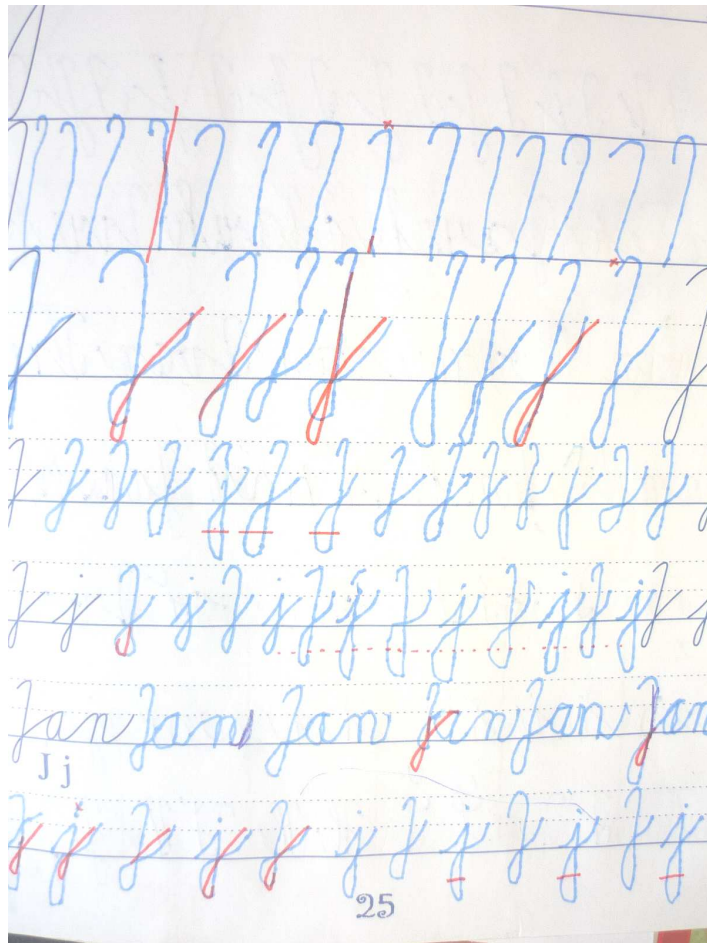 J J J J J J J J J J
J J J J J J J J J J J J J J J
J j J j J j J j J j J j J j J j
Jan Jan Jan Jan Jan Jan
J j
J j J j J j J j J j J j
25